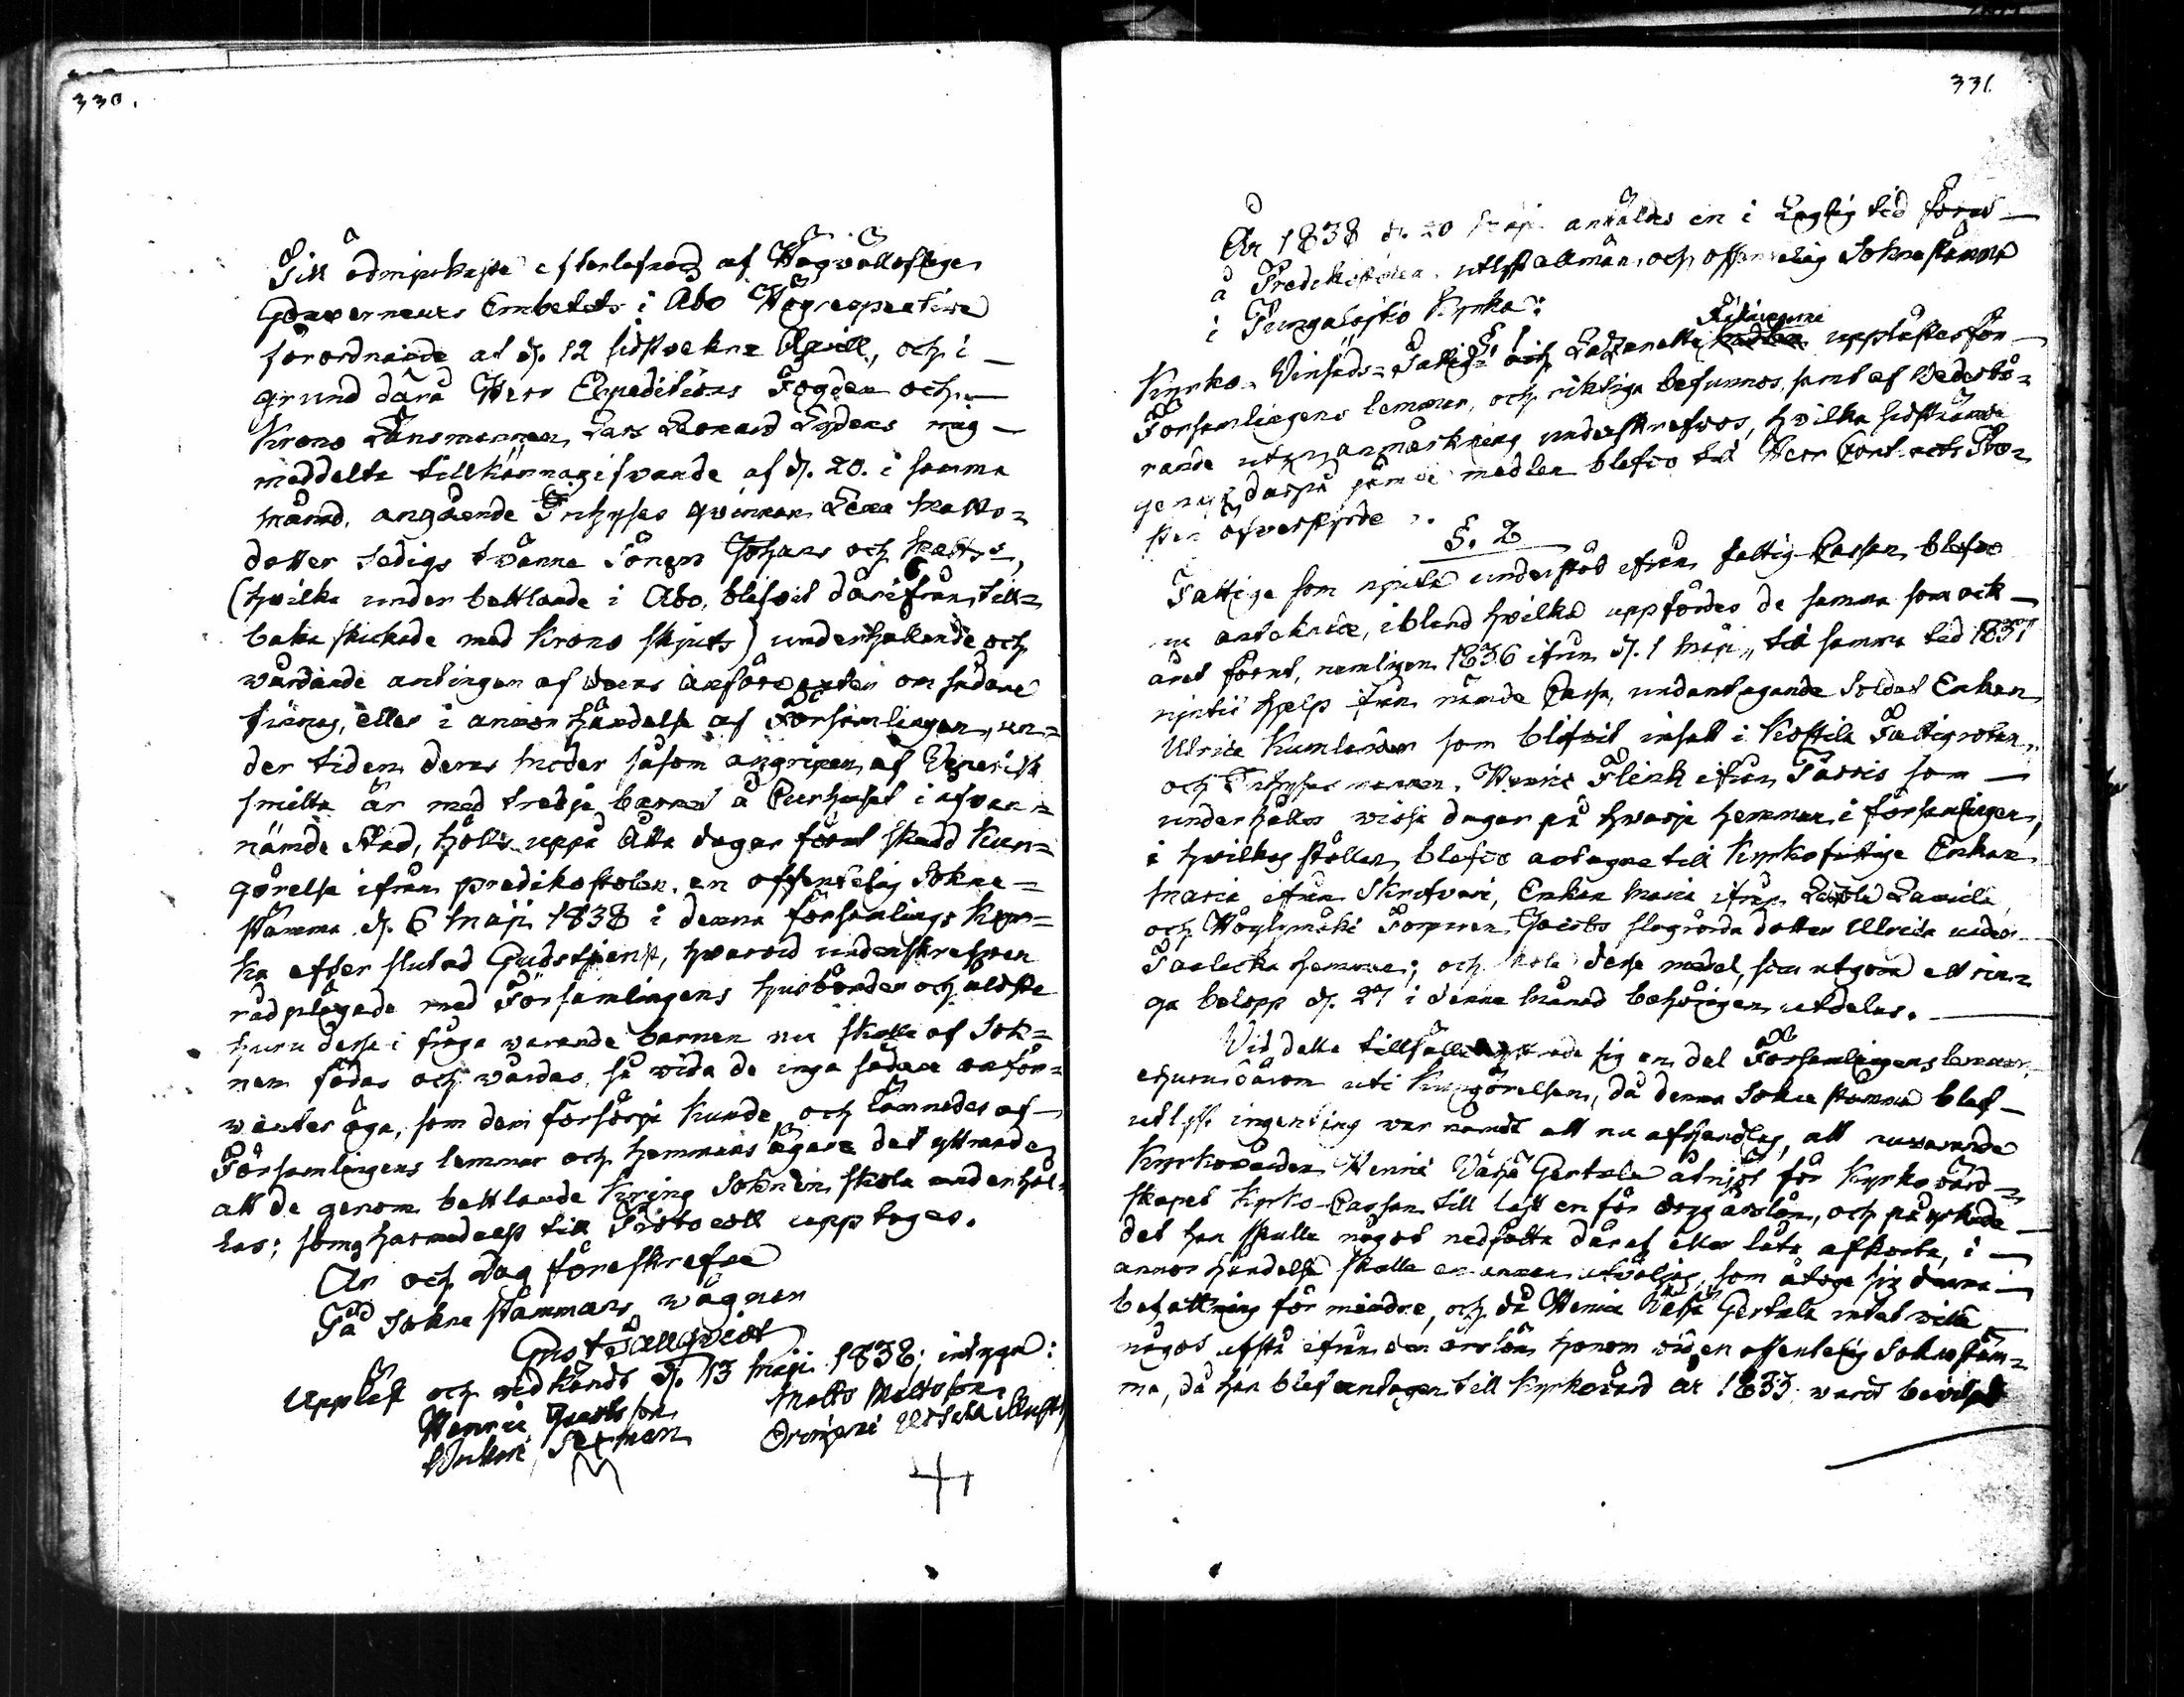 330.
Till ödmjukaste efterlefnad af Högvälloflige
Gouverneurs Embetets i Åbo Högrespective
förordnande af d. 12 sidstvekne Aprill, och i
grund därå Herr Expeditions Fogden och
Krono Länsmannen Lars Leonard Lydens mig
meddelte tillkännagifvande af d. 20. i samma
månad, angående Inhyses qvinnan Lena Matts=
dotter Sedigs tvänne Söners Johans och Matts=,
(hvilka under bettlande i Åbo, blifvit därifrån till=
baka skickade med Krono skjuts) underhållande och
vårdande antingen af deras anförvanter om sådane
finnas, eller i annor händelse af Församlingen, un=
der tiden deras moder såsom angripen af Venerisk
smitta är med tredje barnet å Curhuset i ofvan=
nämde Stad, hölls uppå åtta dagar förut skedd kun=
görelse ifrån predikostolen en offentelig Sokne=
stämma d. 6 Maji 1838 i denna församlings Kyr=
ka efter slutad Gudstjenst, hvarvid underskrefven
rådplägade med Församlingens husbönder och äldste
huru desse i fråga varande barnen nu skulle af Sok=
nen födas och vårdas, så vida de inga sådane anför=
wanter äga, som dem försörja kunde, och lemnades af
Församlingens lemmar och hemmans ägare det yttrande
att de genom bettlande kring Soknen skola underhål=
las; som härmedelst till Protocoll upptages.
År och Dag föreskrefne
På Sokne stämmans vägnar
Gust Sällqvist
Uppläst och vedkändt d. 13 Maji 1838; intyga:
Henric Jacobsson Matts Mattsson
Sexman
331.
År 1838 d. 20 Maji anstäldes en i Laglig tid förut
å Predikstolen utlyst allmän och offentelig Sokne stämma
i Pungalaitio Kyrka:
§ 1
Räkningarne
Kyrko- Vinsäds- Fattig- och Lazaretts upplästes för
Församlingens lemmar, och riktiga befunnos, samt af Vederbö=
rande utan anmärkning underskrefvos, hvilka sistnämde
jemte medlen blefvo till Herr Contracts Pro=
sten öfversände.
§. 2
Fattige som njuta understöd ifrån fattig-Cassan blefvo
nu antecknade, ibland hvilka uppfördes de samma som ock
året förut, nemligen 1836 ifrån d. 1 Maji till samma tid 1837
njutit hjelp från nämde Cassa, undantagande Soldat Enkan
Ulrica Kumlander som blifvit insatt i Kostila Fattigrotan,
och Inhyses mannen Henric Flink ifrån Tassis som
underhålles vissa dagar på hvarje hemman i församlingen,
i hvilkas ställen blefvo antagne till Kyrkofattige Enkan
Maria ifrån Skrifvari, Enkan Maria ifrån Laurila
och Höglymäki Torparen Jacobs slagrörda dotter Ulrica under
hemman; och skola desse medel, som utgöra ett rin=
ga belopp d. 27 i denna Månad behörigen utdelas.
Vid detta tillfälle yttrade sig en del Församlingens lemmar,
ehuru därom uti Kungörelsen, då denna Sokne stämma blef
utlyst ingenting var nämdt att nu afhandlas, att nuvarande
Kyrkovärden Henric Vähä Gertala åtnjöt för Kyrkovärd=
skapet Kyrko-Cassan till last en för dryg årslön, och påyrkade
det han skulle något nedsätta däraf eller låta afkorta, i
annor händelse skulle en annan utväljas, som åtoge sig denna
befattning för mindre, och då Henric Vähä Gertala intet ville
något afstå ifrån den årslön honom vid en offentelig Sokne stäm=
ma, då han blef antagen till Kyrkovärd år 1833. vardt beviljad